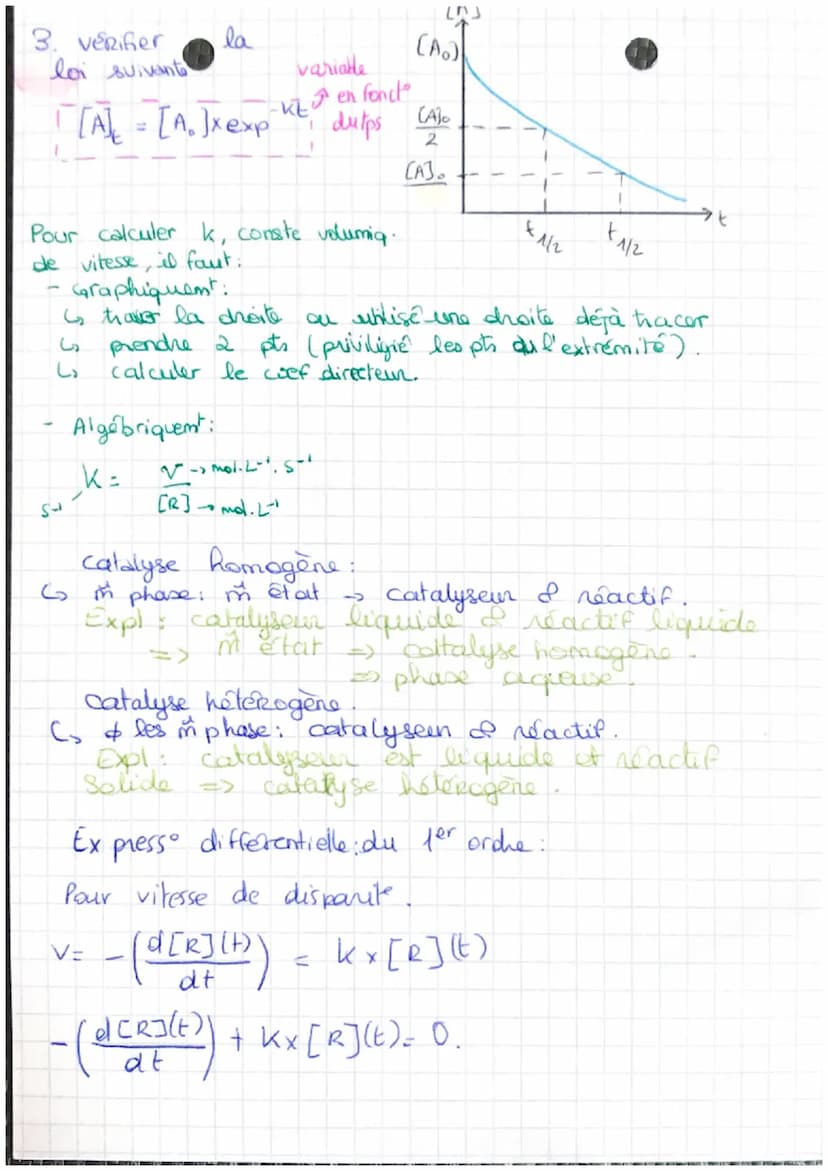 3. vérifier la
loi suivante
variable
en fonct°
du tps
[A]t = [A₀] x exp^-kt
[A]
[A₀]
[A]₀/2
[A]₀
t 1/2
t 1/2
t
Pour calculer k, conste volumiq.
de vitesse, il faut :
- Graphiquemt :
↳ tracer la droite ou utilisé une droite déjà tracer
↳ prendre 2 pts (priviligié les pts du l'extrémité).
↳ calculer le coef directeur.
- Algébriquemt :
K = V → mol.L⁻¹.s⁻¹
s⁻¹ [R] → mol.L⁻¹
catalyse homogène :
↳ m̂ phase : m̂ état → catalyseur & réactif.
Expl : catalyseur liquide & réactif liquide
=> m̂ état => caltalyse homogène.
=> phase aqueuse.
catalyse hétérogène.
↳ ≠ les m̂ phase : catalyseur & réactif.
Expl : catalyseur est liquide et réactif
Solide => catalyse hétérogène.
Express° différentielle : du 1er ordre :
Pour vitesse de disparit°.
V = -(d[R](t)/dt) = k x [R](t)
-(d[R](t)/dt) + K x [R](t) = 0.